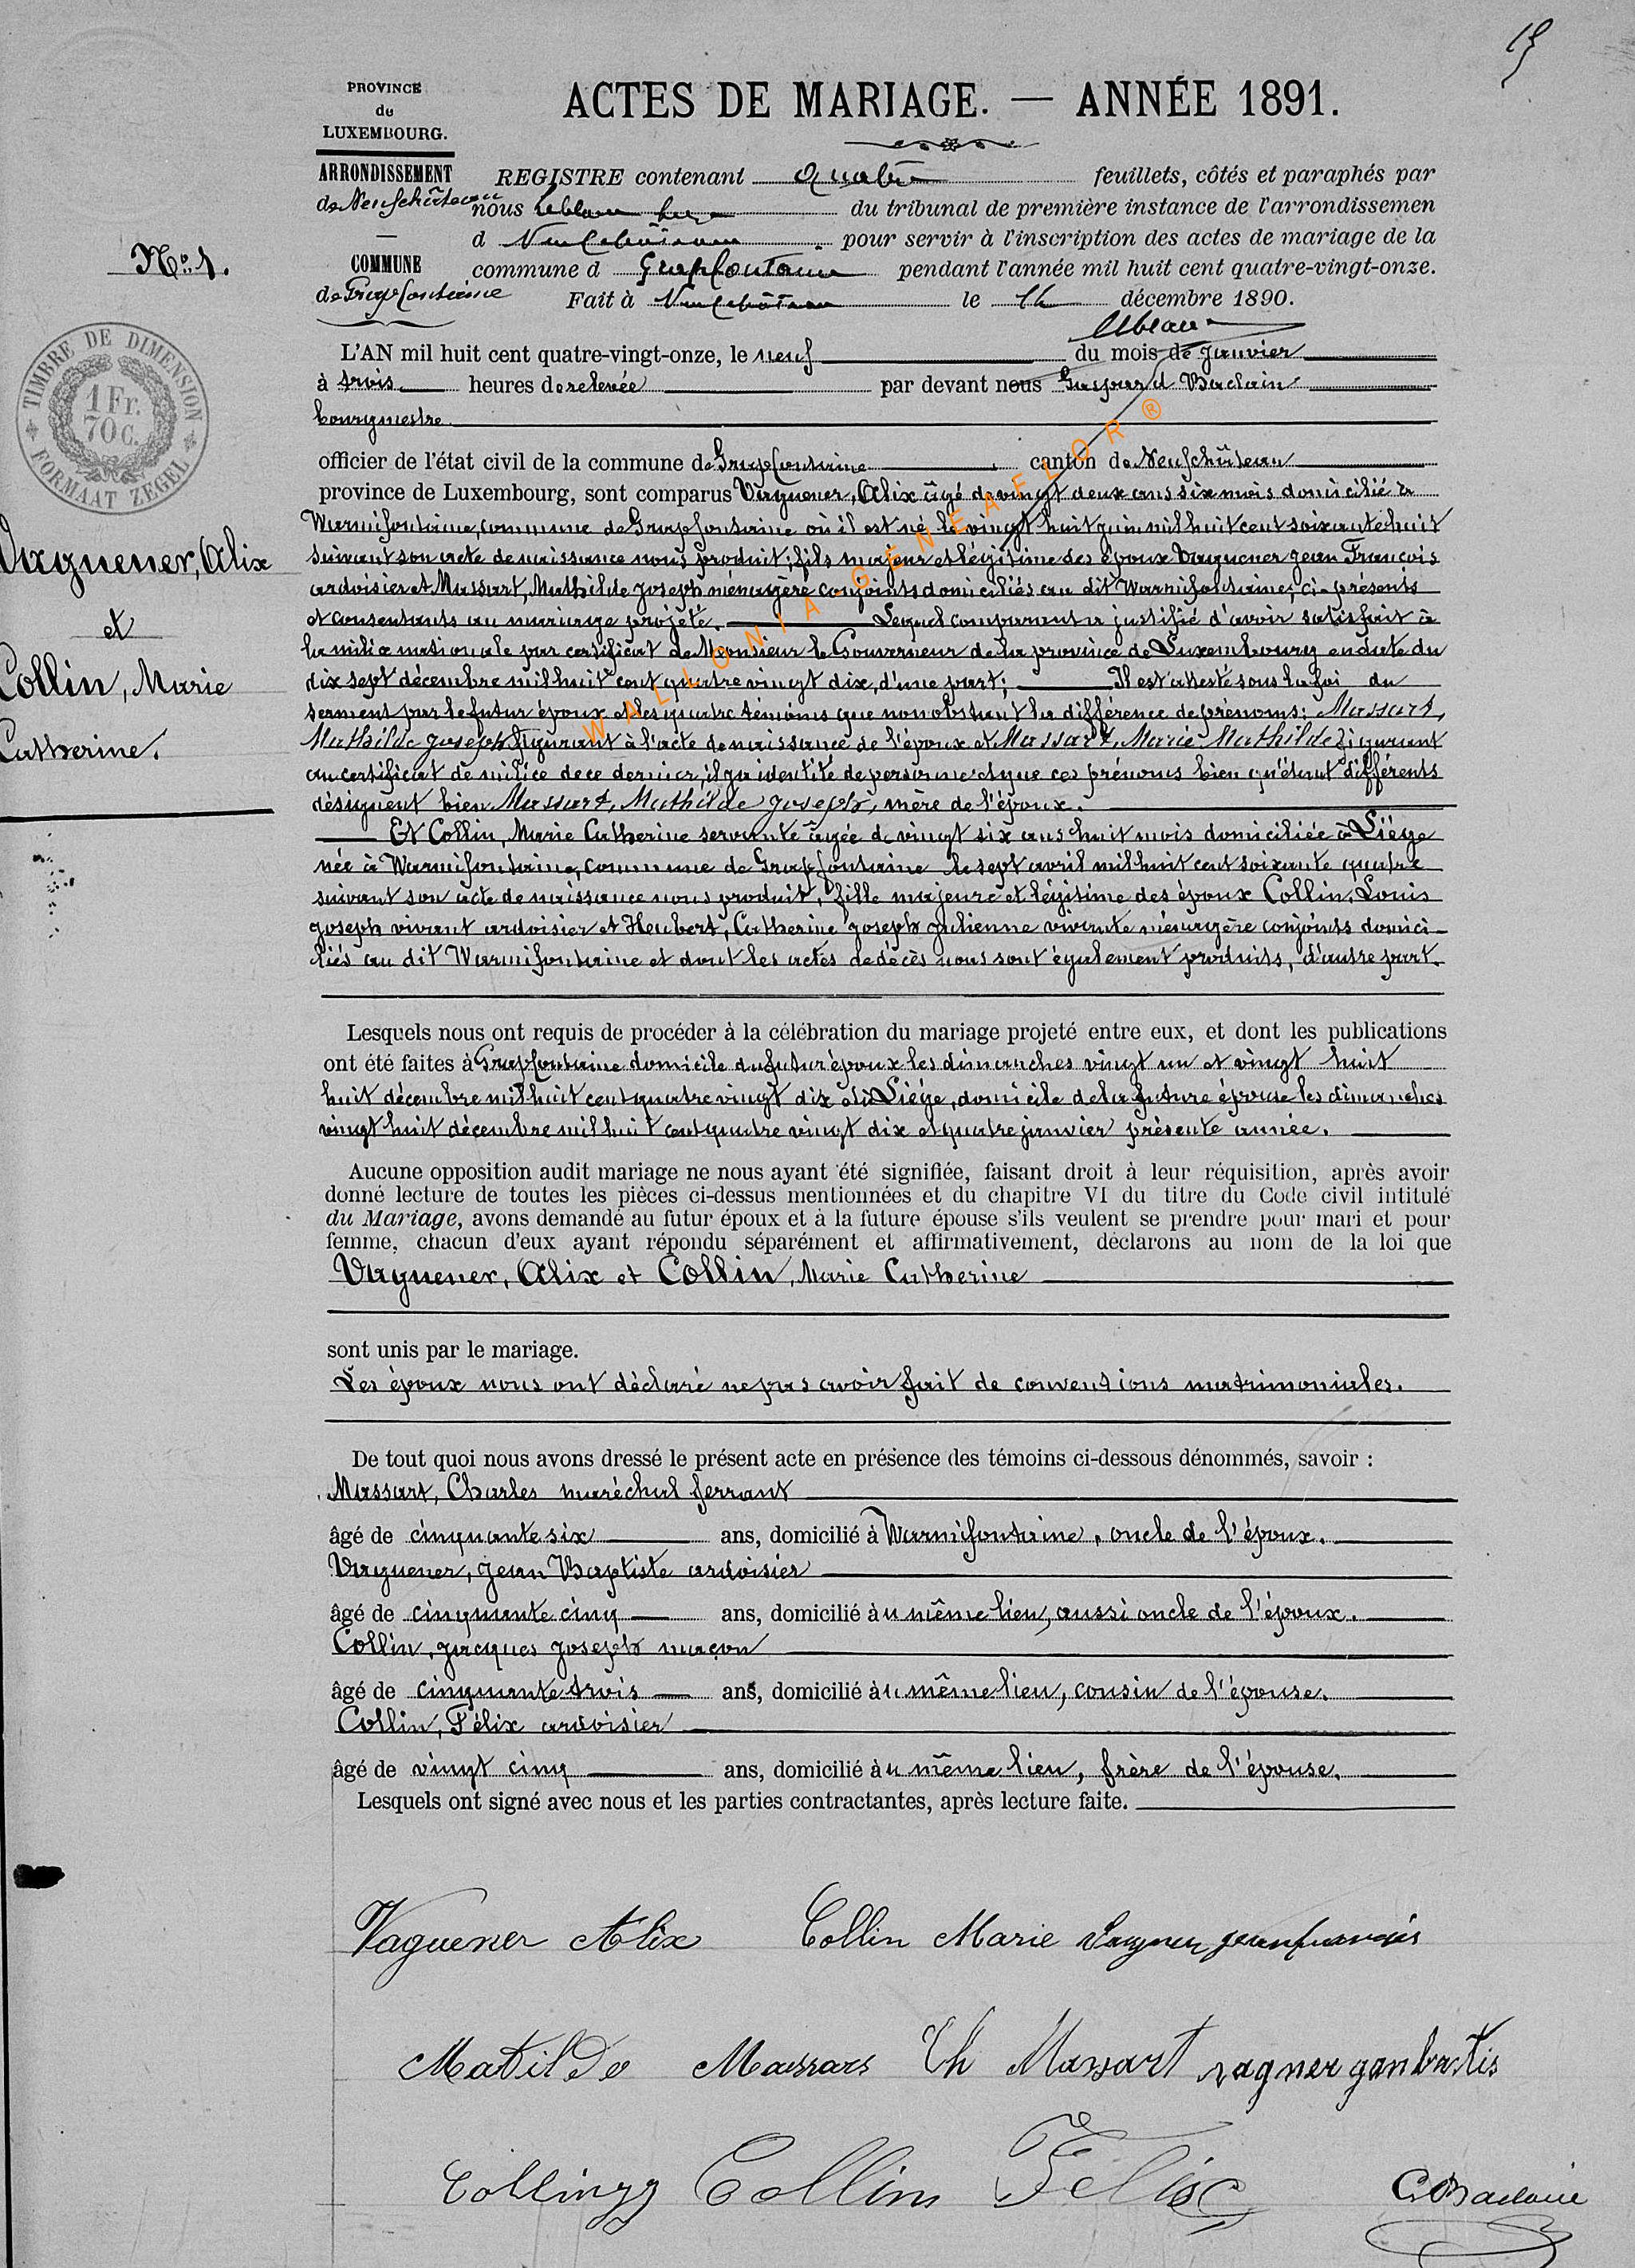 PROVINCE
de
LUXEMBOURG.
ACTES DE MARIAGE. — ANNÉE 1891.
ARRONDISSEMENT
de Neufchâteau
COMMUNE
de Grapfontaine
REGISTRE contenant quatre feuillets, côtés et paraphés par
nous du tribunal de première instance de l'arrondissemen
d Neufchâteau pour servir à l'inscription des actes de mariage de la
commune d Grapfontaine pendant l'année mil huit cent quatre-vingt-onze.
Fait à Neufchâteau le décembre 1890.
No. 1.
TIMBRE DE DIMENSION
1 Fr.
70 C.
FORMAAT ZEGEL
Vaguener, Alix
et
Collin, Marie
Catherine.
L'AN mil huit cent quatre-vingt-onze, le neuf du mois de janvier
à trois heures de relevée par devant nous Gaspard Baclain
bourgmestre
officier de l'état civil de la commune de Grapfontaine canton de Neufchâteau
province de Luxembourg, sont comparus Vaguener, Alix âgé de vingt deux ans six mois domicilié à
Warmifontaine, commune de Grapfontaine où il est né le vingt huit juin mil huit cent soixante huit
suivant son acte de naissance nous produit; fils majeur et légitime des époux Vaguener Jean François
ardoisier et Massart, Mathilde Joseph ménagère conjoints domiciliés au dit Warmifontaine, ci-présents
et consentants au mariage projeté. Lequel comparant a justifié d'avoir satisfait à
la milice nationale par certificat de Monsieur le Gouverneur de la province de Luxembourg en date du
dix sept décembre mil huit cent quatre vingt dix, d'une part; Il est attesté sous la foi du
serment par le futur époux et les quatre témoins que nonobstant la différence de prénoms: Massart,
Mathilde Joseph figurant à l'acte de naissance de l'époux et Massart, Marie Mathilde figurant
au certificat de milice de ce dernier, il y a identité de personne et que ces prénoms bien qu'étant différents
désignent bien Massart, Mathilde Joseph, mère de l'époux.
Et Collin, Marie Catherine servante âgée de vingt six ans huit mois domiciliée à Liége
née à Warmifontaine, commune de Grapfontaine le sept avril mil huit cent soixante quatre
suivant son acte de naissance nous produit, fille majeure et légitime des époux Collin, Louis
Joseph vivant ardoisier et Heubert, Catherine Joseph Julienne vivante ménagère conjoints domici-
liés au dit Warmifontaine et dont les actes de décès nous sont également produits, d'autre part.
Lesquels nous ont requis de procéder à la célébration du mariage projeté entre eux, et dont les publications
ont été faites à Grapfontaine domicile du futur époux les dimanches vingt un et vingt huit
huit décembre mil huit cent quatre vingt dix et à Liége, domicile de la future épouse les dimanches
vingt huit décembre mil huit cent quatre vingt dix et quatre janvier présente année.
Aucune opposition audit mariage ne nous ayant été signifiée, faisant droit à leur réquisition, après avoir
donné lecture de toutes les pièces ci-dessus mentionnées et du chapitre VI du titre du Code civil intitulé
du Mariage, avons demandé au futur époux et à la future épouse s'ils veulent se prendre pour mari et pour
femme, chacun d'eux ayant répondu séparément et affirmativement, déclarons au nom de la loi que
Vaguener, Alix et Collin, Marie Catherine
sont unis par le mariage.
Les époux nous ont déclaré ne pas avoir fait de conventions matrimoniales.
De tout quoi nous avons dressé le présent acte en présence des témoins ci-dessous dénommés, savoir :
Massart, Charles maréchal ferrant
âgé de cinquante six ans, domicilié à Warmifontaine, oncle de l'époux.
Vaguener, Jean Baptiste ardoisier
âgé de cinquante cinq ans, domicilié au même lieu, aussi oncle de l'époux.
Collin, Jacques Joseph maçon
âgé de cinquante trois ans, domicilié au même lieu, cousin de l'épouse.
Collin, Félix ardoisier
âgé de vingt cinq ans, domicilié au même lieu, frère de l'épouse.
Lesquels ont signé avec nous et les parties contractantes, après lecture faite.
Vaguener Alix Collin Marie Vagner jean francois
Matilde Massars Ch Massart vagner gan batis
Collin jj Collin Félix G Baclain
WALLONIA-GENEAFLOR®